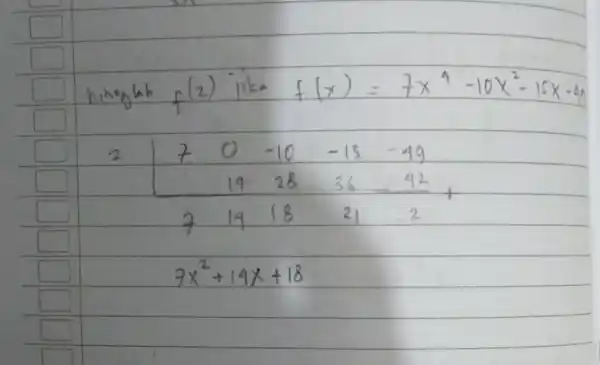 hitunglah f(2) jika f(x) = 7x⁴ - 10x² - 15x - 49
2 | 7 0 -10 -15 -49
14 28 36 42 +
7 14 18 21 2
7x² + 14x + 18